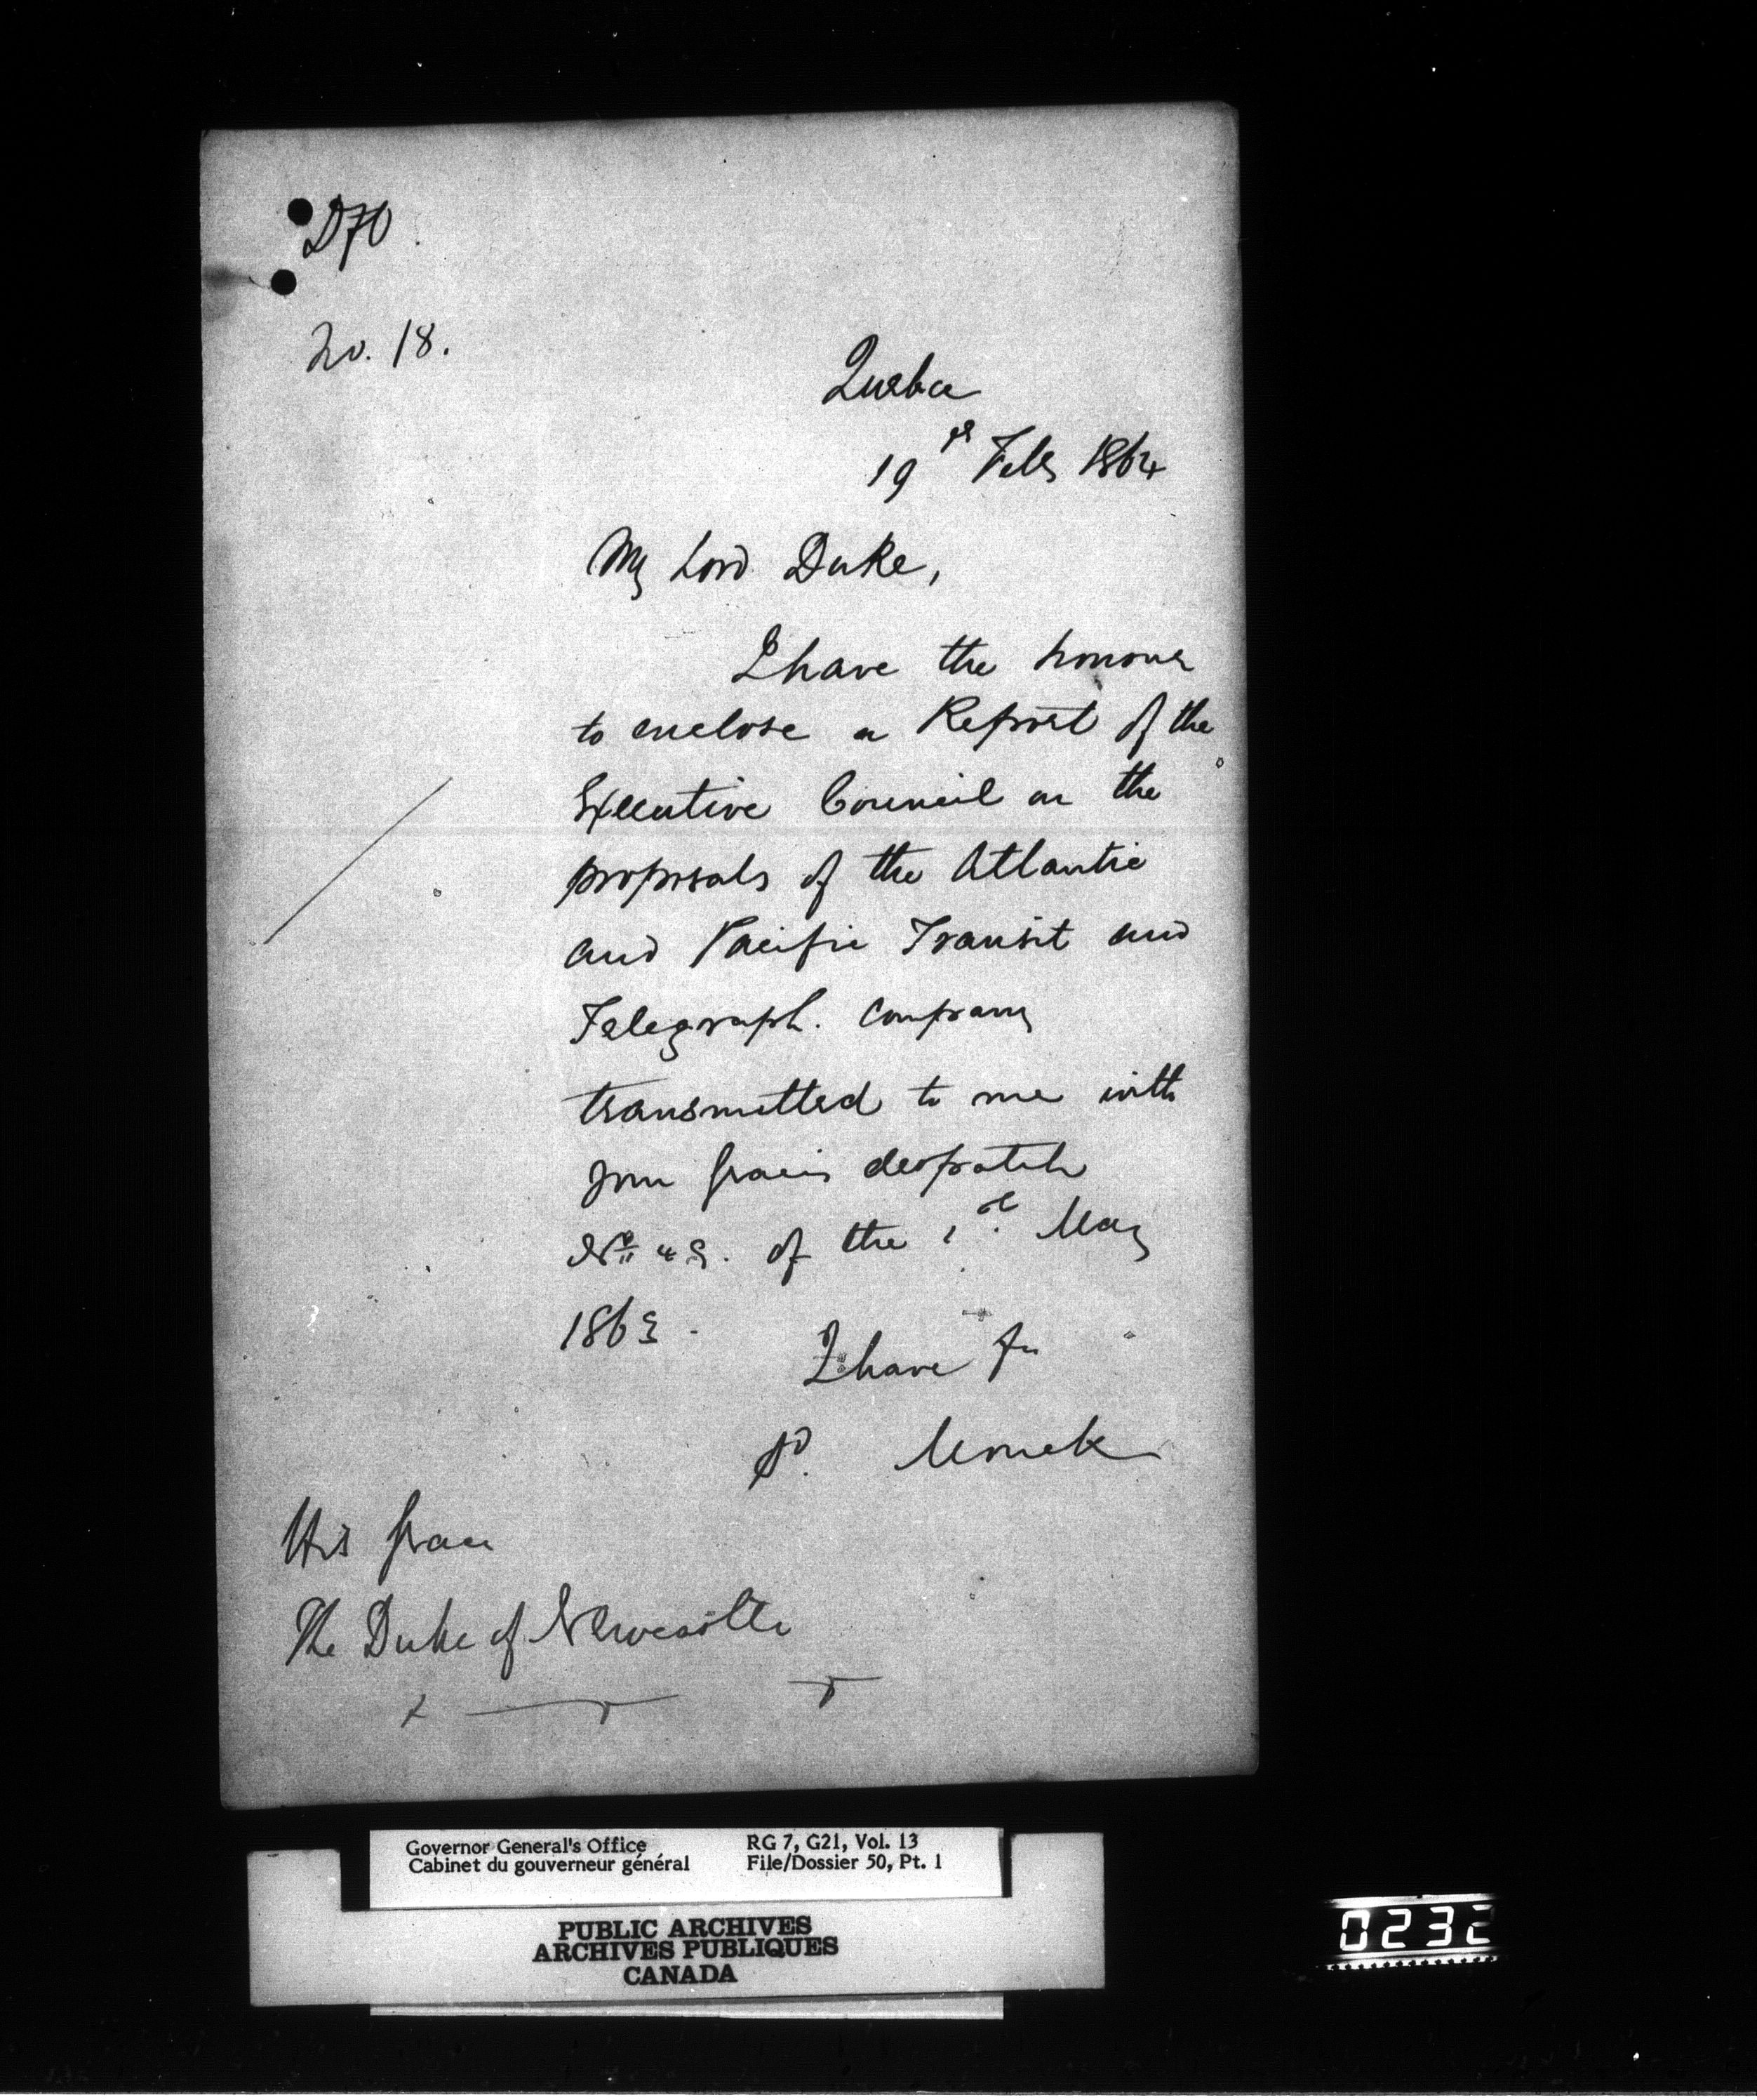 D70
No. 18.
Quebec
19th Feby 1864
My Lord Duke,
I have the honour
to enclose a Report of the
Executive Council on the
proposals of the Atlantic
and Pacific Transit and
Telegraph. Company
transmitted to me with
your Grace's despatch
No of the 1st May
1863.
I have &c
sd. Monck
His Grace
The Duke of Newcastle
Governor General's Office
Cabinet du gouverneur général
RG 7, G21, Vol. 13
File/Dossier 50, Pt. 1
PUBLIC ARCHIVES
ARCHIVES PUBLIQUES
CANADA
0232